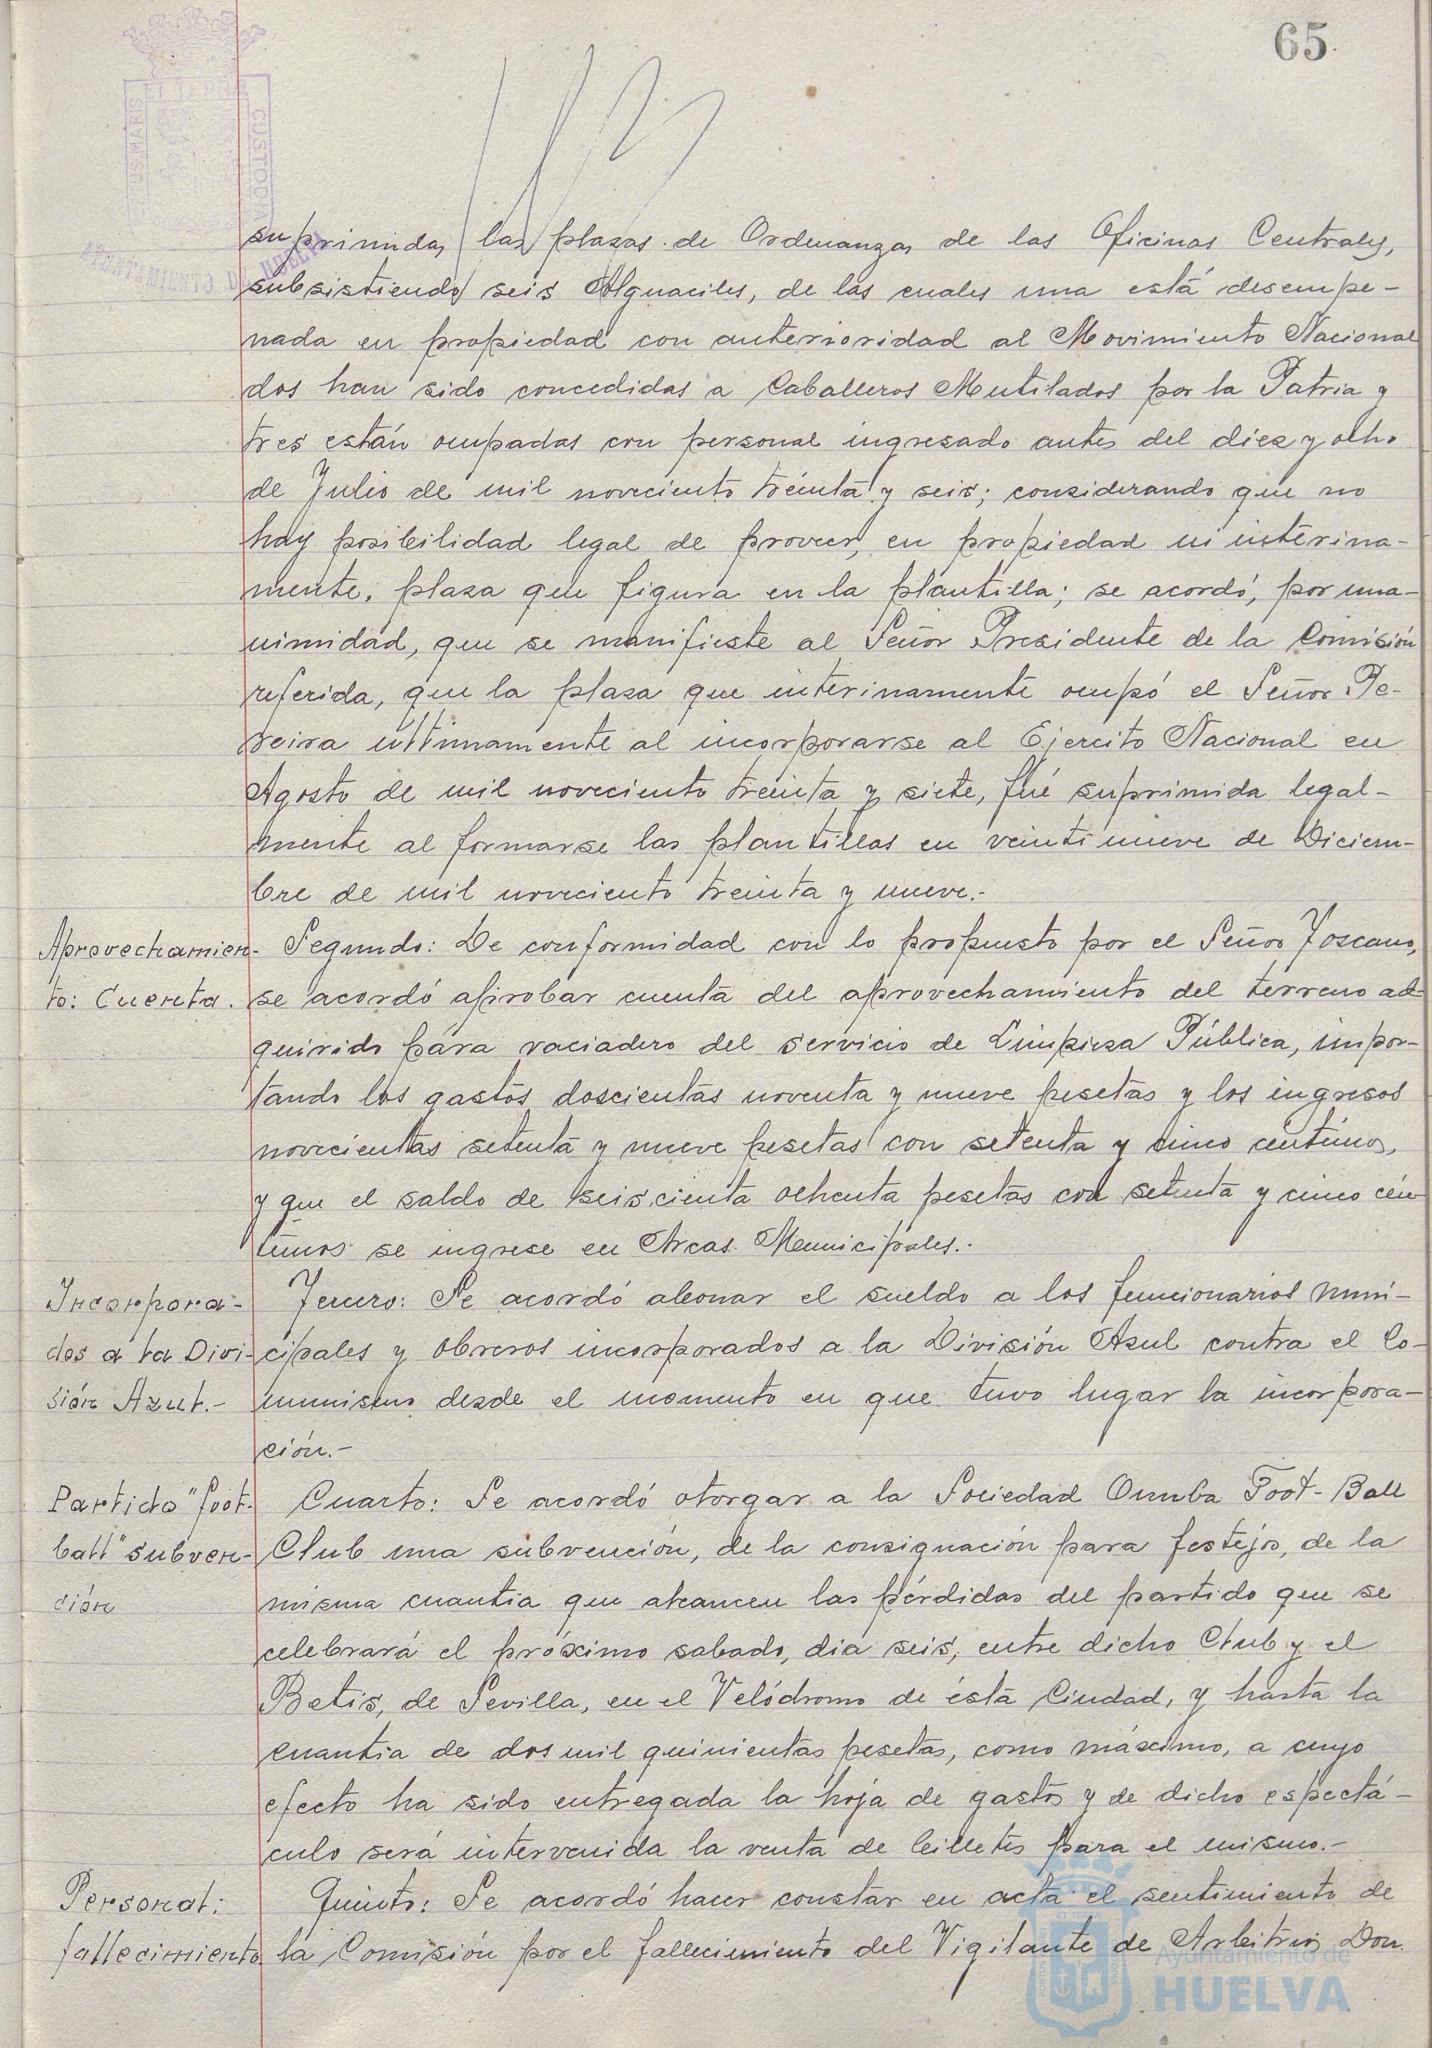 65
suprimidas las plazas de Ordenanzas de las Oficinas Centrales,
subsistiendo seis Alguaciles, de las cuales una está desempe-
nada en propiedad con anterioridad al Movimiento Nacional
dos han sido concedidas a Caballeros Mutilados por la Patria y
tres están ocupadas con personal ingresado antes del diez y ocho
de Julio de mil noveciento treinta y seis; considerando que no
hay posibilidad legal de proveer, en propiedad ni interina-
mente, plaza que figura en la plantilla; se acordó, por una-
nimidad, que se manifieste al Señor Presidente de la Comisión
referida, que la plaza que interinamente ocupó el Señor Pe-
reira ultimamente al incorporarse al Ejercito Nacional en
Agosto de mil noveciento treinta y siete, fué suprimida legal-
mente al formarse las plantillas en veintinueve de Diciem-
bre de mil noveciento treinta y nueve.-
Aprovechamien-
to: Cuenta.
Segundo: De conformidad con lo propuesto por el Señor Toscano,
se acordó aprobar cuenta del aprovechamiento del terreno ad-
quirido para vaciadero del servicio de Limpieza Pública, impor-
tando los gastos doscientas noventa y nueve pesetas y los ingresos
novecientas setenta y nueve pesetas con setenta y cinco centimos,
y que el saldo de seiscienta ochenta pesetas con setenta y cinco cén-
timos se ingrese en Arcas Municipales.-
Incorpora-
dos a la Divi-
sión Azul.-
Tercero: Se acordó abonar el sueldo a los funcionarios muni-
cipales y obreros incorporados a la División Azul contra el Co-
munismo desde el momento en que tuvo lugar la incorpora-
ción.-
Partido "foot-
ball" subven-
ción
Cuarto: Se acordó otorgar a la Sociedad Onuba Foot-Ball
Club una subvención, de la consignación para festejos, de la
misma cuantia que alcancen las pérdidas del partido que se
celebrará el próximo sabado, dia seis, entre dicho Club y el
Betis, de Sevilla, en el Velódromo de ésta Ciudad, y hasta la
cuantia de dos mil quinientas pesetas, como máximo, a cuyo
efecto ha sido entregada la hoja de gastos y de dicho espectá-
culo será intervenida la venta de billetes para el mismo.-
Personal:
fallecimiento
Quinto: Se acordó hacer constar en acta el sentimiento de
la Comisión por el fallecimiento del Vigilante de Arbitrios Don
Ayuntamiento de
HUELVA